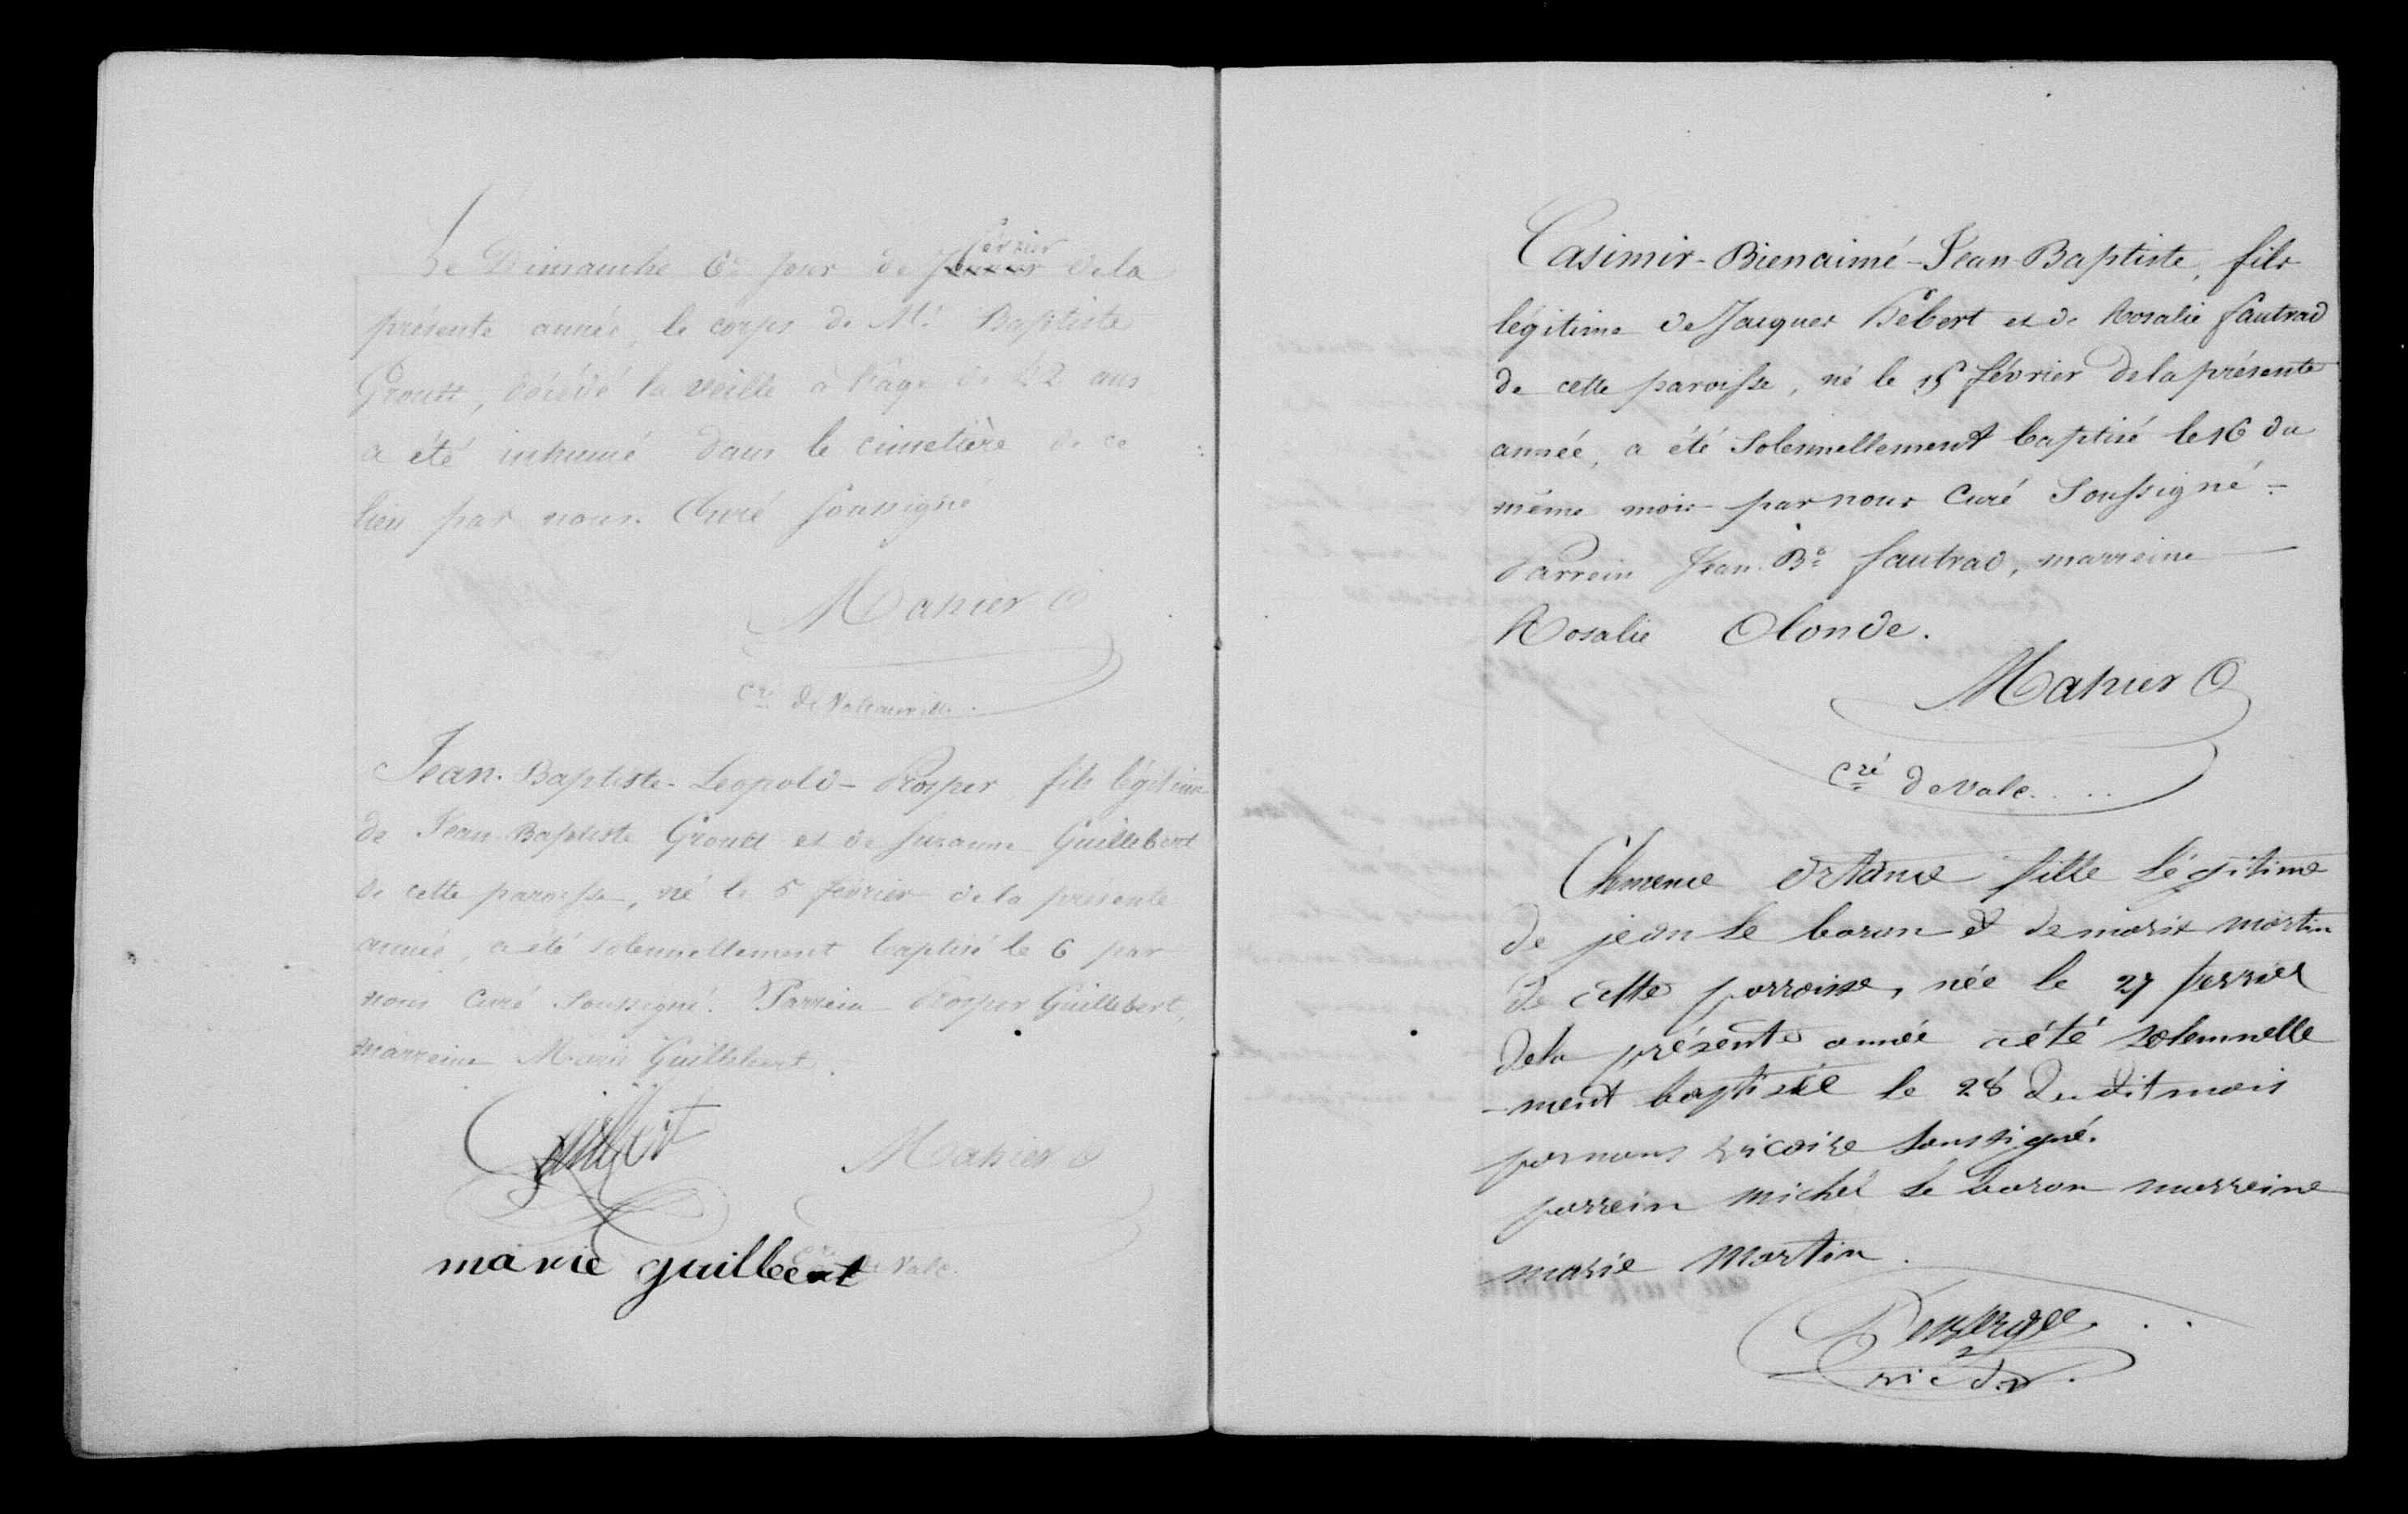 Le Dimanche 6e jour de février de la
présente année, le corps de Mr Baptiste
Groult, décédé la veille à l'âge de 42 ans
a été inhumé dans le cimetière de ce
lieu par nous Curé soussigné
Mahier
Cré de Valcanville.
Jean-Baptiste-Leopold-Prosper, fils légitime
de Jean-Baptiste Groult et de Suzanne Guillebert
de cette paroisse, né le 5 février de la présente
année, a été solennellement baptisé le 6 par
nous Curé Soussigné. Parrein Prosper Guillebert,
marreine Marie Guillebert.
Mahier
marie guillbert
Cré de Valc.
Casimir-Bienaimé-Jean-Baptiste, fils
légitime de Jacques Hébert et de Rosalie fautrad
de cette paroisse, né le 15 février de la présente
année, a été Solennellement baptisé le 16 du
même mois par nous Curé Soussigné.
Parrein Jean Bte fautrad, marreine
Rosalie Clonde.
Mahier
Cré de Valc....
Clemence ortance fille légitime
de jean le baron et de marie martin
de cette parroisse, née le 27 fevrier
de la présente année a été solemnelle
-ment baptisée le 28 du dit mois
par nous vicaire soussigné.
parrein michel le baron marreine
marie martin.
vic